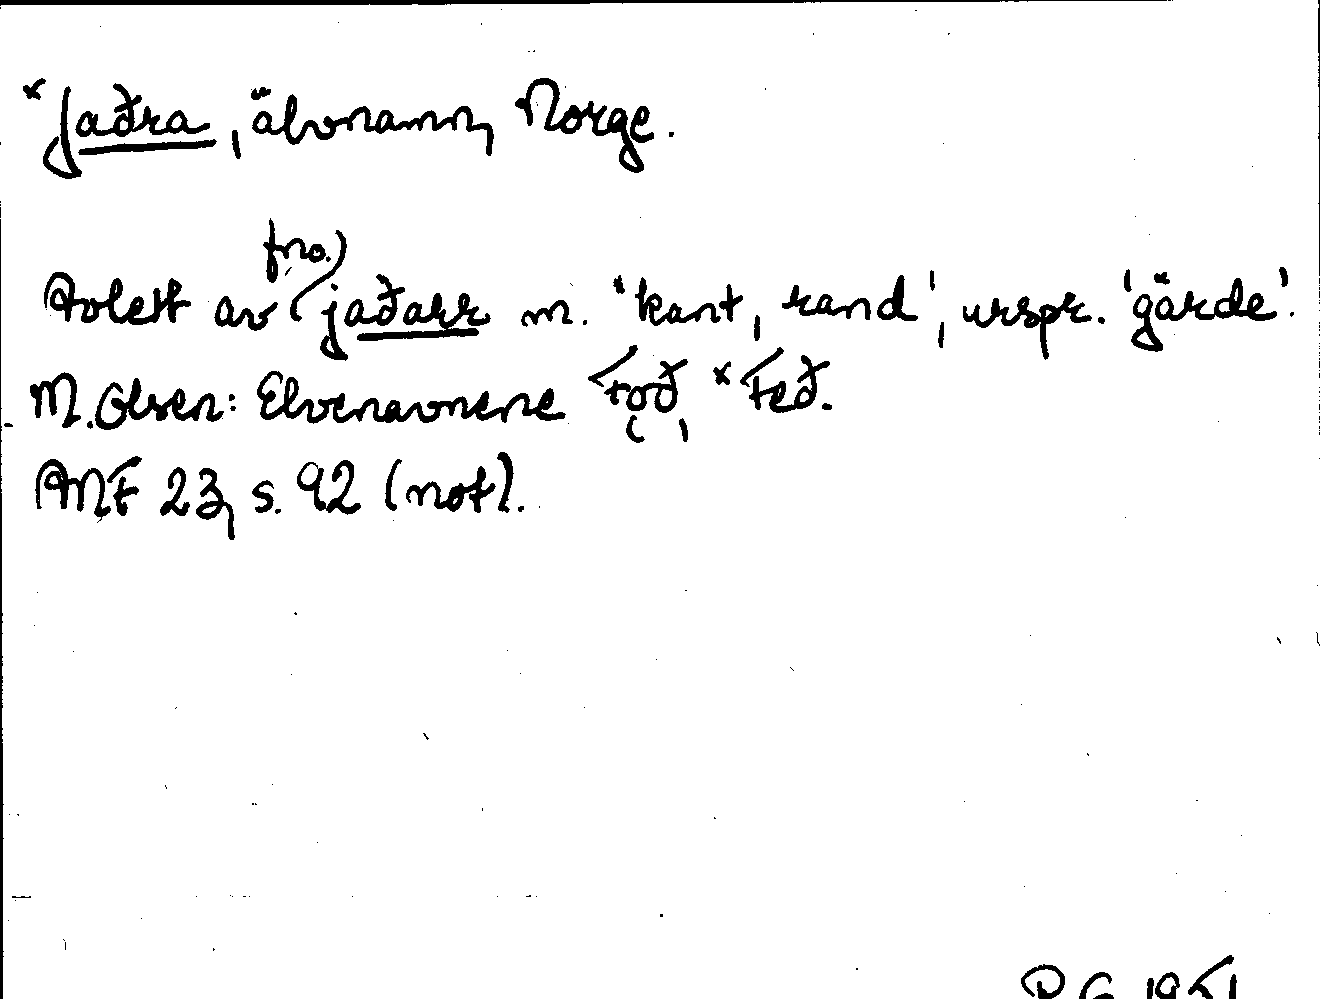 *Jaðra, älvnamn, Norge.
Avlett av (fno.) jaðarr m. 'kant, rand', urspr. 'gärde'.
M. Olsen: Elvenavnene Fǫð, *Feð.
ANF 23, s. 92 (not).
R.G. 1951